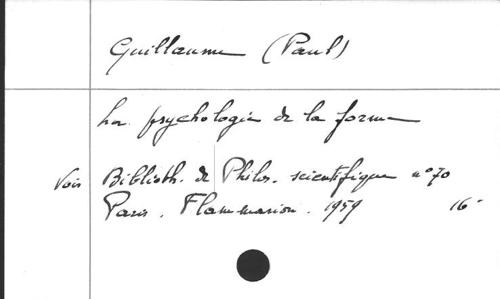 Guillaume (Paul)
La psychologie de la forme
Voir Biblioth. de Philos. scientifique n° 70
Paris. Flammarion. 1959 16°